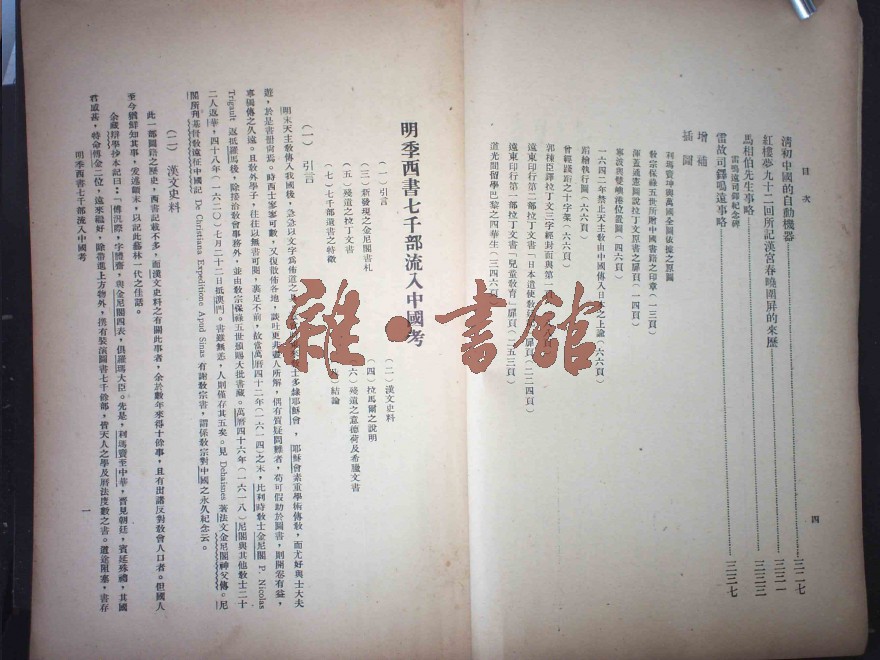 目次
四
清初中國的自動機器
紅樓夢九十二回所記漢宮春曉圍屏的來歷
馬相伯先生事略 三三三
雷鳴遠司鐸紀念碑
雷故司鐸鳴遠事略 三三七
增補
插圖
利瑪竇坤輿萬國全圖依據之原圖
教宗保祿五世所贈中國書籍之印章(一三頁)
渾蓋通憲圖說拉丁文原書之扉頁(一四頁)
寧波與雙嶼港位置圖(四六頁)
一六四二年禁止天主教由中國傳入日本之上諭(六六頁)
踏繪執行圖(六六頁)
曾經踐踏之十字架(六六頁)
郭棟臣譯拉丁文三字經封面與第一頁
遠東印行第二部拉丁文書「日本遣使教廷 扉頁(二二四頁)
遠東印行第一部拉丁文書「兒童教育」扉頁(二五三頁)
道光間留學巴黎之四華生(三四六頁)
明季西書七千部流入中國考
(一)引言 (二)漢文史料
(三)新發現之金尼閣書札 (四)拉馬爾之說明
(五)殘遺之拉丁文書 (六)殘遺之意德荷及希臘文書
(七)七千部遺書之特徵 結論
(一) 引言
明末天主教傳入我國後,急急以文字為佈道之 士多隸耶穌會,耶穌會素重學術傳教,而尤好與士大夫
遊,於是書籍尚焉。時西士寥寥可數,又復散佈各地,談吐更非盡人所解,偶有質疑問難者,苟可假助於圖書,則開卷有益,
事竣傳之久遠。且教外學子,往往以無書可閱,裹足不前,故當萬曆四十二年(一六一四)之末,比利時教士金尼閣 P. Nicolas
Trigault 返抵羅馬後,除接洽教會事務外,並由教宗保祿五世頒賜大批書藏。萬曆四十六年(一六一八)尼閣與其他教士二十
二人返華,四十八年(一六二〇)七月二十二日抵澳門。書雖無恙,人則僅存其五矣。見 Dehaisnes 著法文金尼閣神父傳。尼
閣所刊基督教遠征中國記 De Christiana Expeditione Apud Sinas 有謝教宗書,謂係教宗對中國之永久紀念云。
(二) 漢文史料
此一部圖籍之歷史,西書記載不多,而漢文史料之有關此事者,余於數年來得十餘事,且有出諸反對教會人口者。但國人
至今猶鮮知其事,爰述顛末,以記此藝林一代之佳話。
余藏辯學抄本記曰:「傅汎際,字體齋,與金尼閣四表,俱羅瑪大臣。先是,利瑪竇至中華,晉見朝廷,賓廷殊禮,其國
君感甚,特命傅金二位,遠來報好,除帶進上方物外,携有裝演圖書七千餘部,皆天人之學及曆法度數之書。道途阻塞,書存
明季西書七千部流入中國考
一
雜·書館